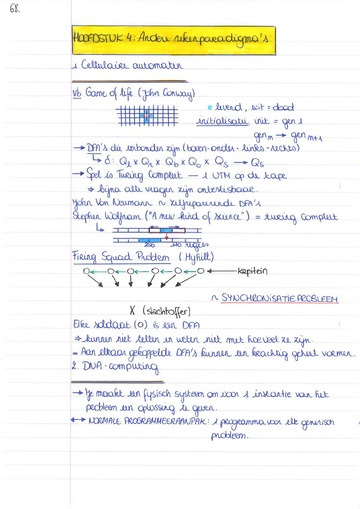 68.
HOOFDSTUK 4: Andere rekenparadigma's
1 Cellulaire automaten
Vb Game of life (John Conway)
levend, wit = dood
initialisatie init = gen 1
gen m → gen m+1
→ DFA's die verbonden zijn (boven-onder-links-rechts)
↳ δ: Qℓ x Qr x Qb x Qo x Qs → Qs
→ Spel is Turing Compleet — 1 UTM op de tape
⇒ bijna alle vragen zijn onbeslisbaar.
John Von Neumann ~ zelfreparerende DFA's
Stephen Wolfram ("A new kind of science") = turing compleet
regels
Firing Squad Problem (Myhill)
kapitein
~ SYNCHRONISATIEPROBLEEM
X (slachtoffer)
Elke soldaat (O) is een DFA
⇒ kunnen niet tellen en weten niet met hoeveel ze zijn.
= Aan elkaar gekoppelde DFA's kunnen een krachtig geheel vormen.
2. DNA-computing
→ Je maakt een fysisch systeem om voor 1 instantie van het
probleem een oplossing te geven.
↔ NORMALE PROGRAMMEERAANPAK: 1 programma voor elk generisch
probleem.